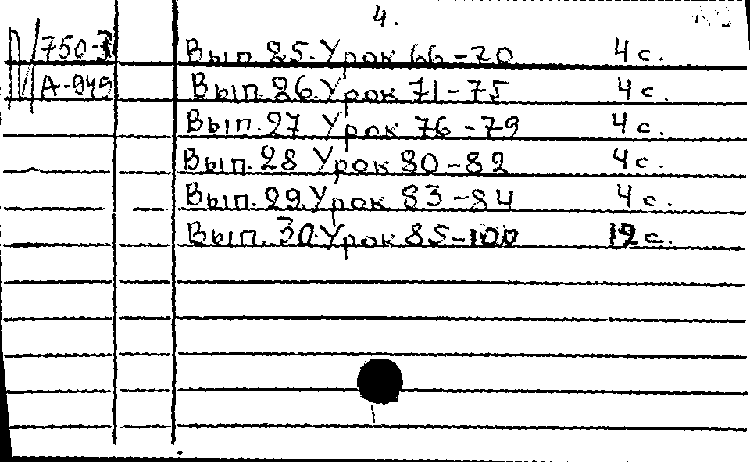 4.
750-3 Вып. 25. Урок 66-70 4 с.
А-949 Вып. 26. Урок 71-75 4 с.
Вып. 27 Урок 76-79 4 с.
Вып. 28 Урок 80-82 4 с.
Вып. 29. Урок 83-84 4 с.
Вып. 30. Урок 85-100 12 с.